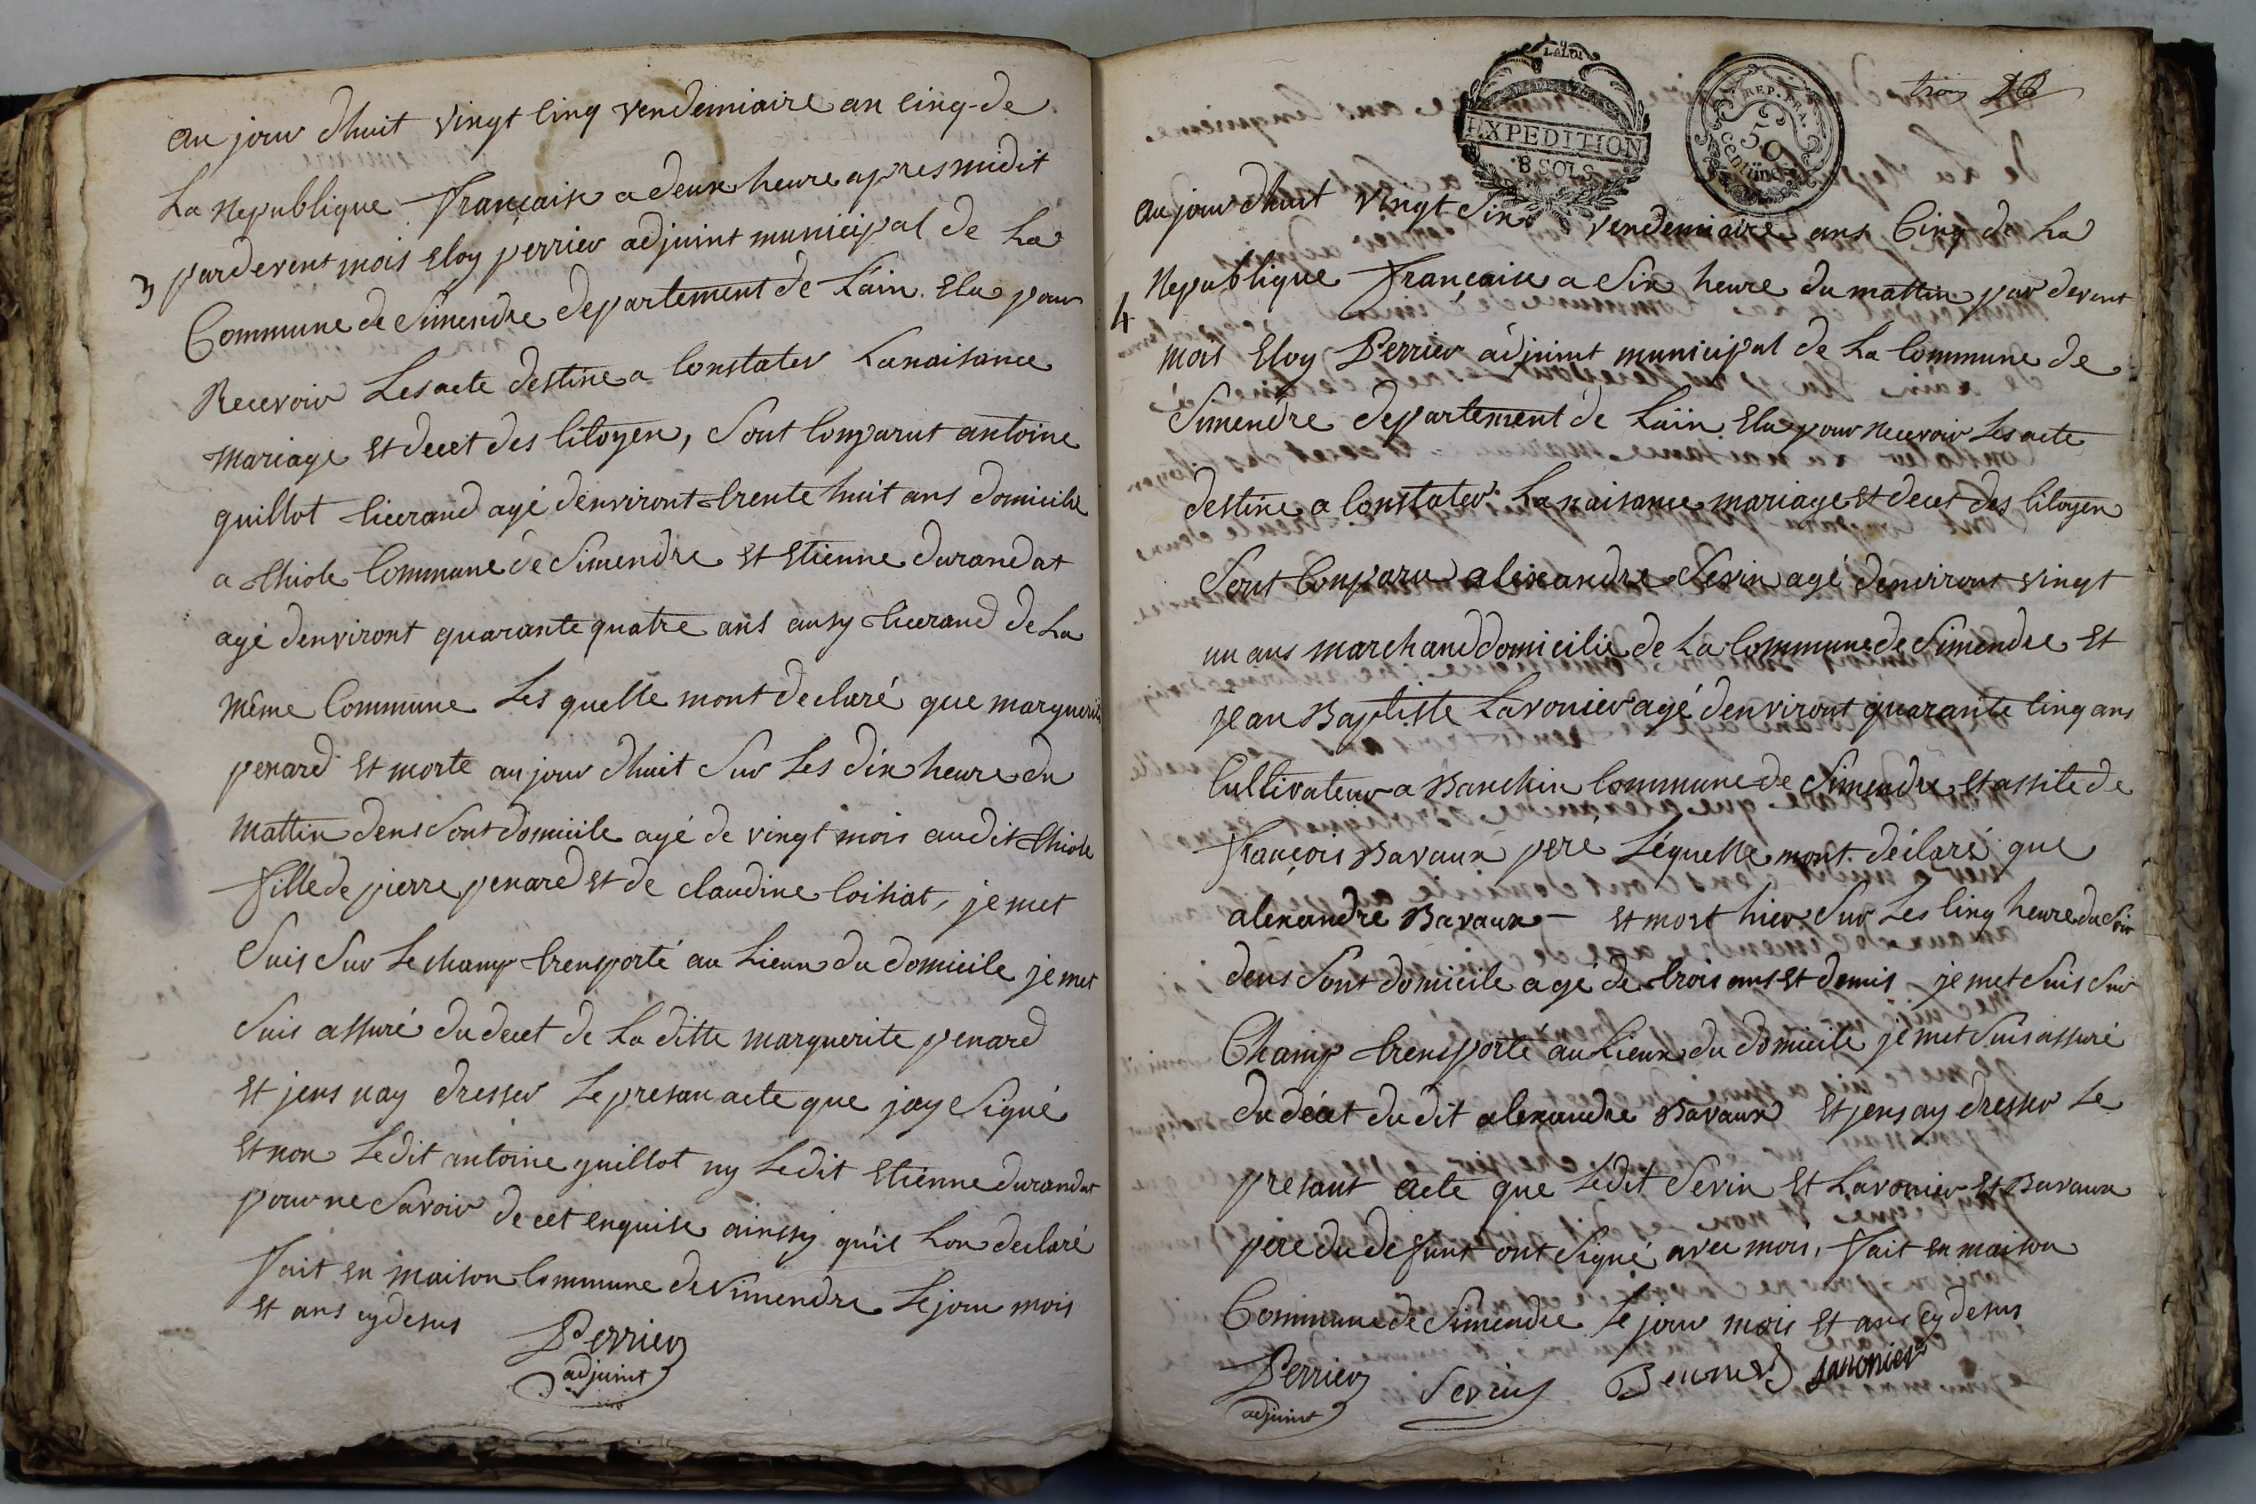 au jour dhuit vingt cinq vendemiaire an cinq de
La Republique française a deux heure apres midit
3
pardevent mois Eloy perrier adjuint municipal de La
Commune de Simendre departement de Lain. Elu pour
Recevoir Les acte destine a Constater La naisance
mariage et decet des Citoyen, Sont Comparut antoine
guillot ticerand agé denviront trente huit ans domicile
a thiole Commune de Simendre et Etienne durandat
agé denviront quarante quatre ans ausy ticerand de La
même Commune Les quelle mont declaré que marguerite
penard et morte au jour dhuit Sur Les dix heure du
mattin dens Sont domicile agé de vingt mois audit thiole
fille de pierre penard et de claudine Coisiat, je met
Suis Sur Le champ trensporté au Lieux du domicile je met
Suis assuré du decet de La ditte marguerite penard
et jens nay dresser Le presan acte que jay Signé
et non Ledit antoine guillot ny Ledit Etienne durandat
pour ne Savoir de cet enquise ainssy quil Lon declaré
fait en maison Commune de Simendre Le jour mois
et ans cy desus
Perrier
adjuint
LA LOI
EXPEDITION
8 SOLS
REP. FRA.
50
CENTIMES
trois
au jour dhuit vingt Six vendemiaire ans Cinq de La
4
Republique française a Six heure du mattin par devent
mois Eloy Perrier adjuint municipal de La Commune de
Simendre departement de Lain Elu pour Recevoir Les acte
destine a Constater La naisance mariage et decet des Citoyen
Sont Comparu alexandre Sevin agé denviront vingt
un ans marchand domicilié de La Commune de Simendre et
jean Baptiste Lavonier agé denviront quarante Cinq ans
Cultivateur a Banchin Commune de Simendre et assite de
françois Bavaux peré Léquelle mont déclaré que
alexandre Bavaux - et mort hier Sur Les Cinq heure du Soir
dens Sont domicile agé de trois ans et demis je met Suis Sur
Champ trensporté au Lieux du domicile je met Suis assuré
du décet du dit alexandre Bavaux et jens ay dresser Le
presant acte que Ledit Sevin et Lavonier et Bavaux
pere du defunt ont Signé avec mois, fait en maison
Commune de Simendre Le jour mois et ans cy desus
Perrier Sevin Lavonier
adjuint